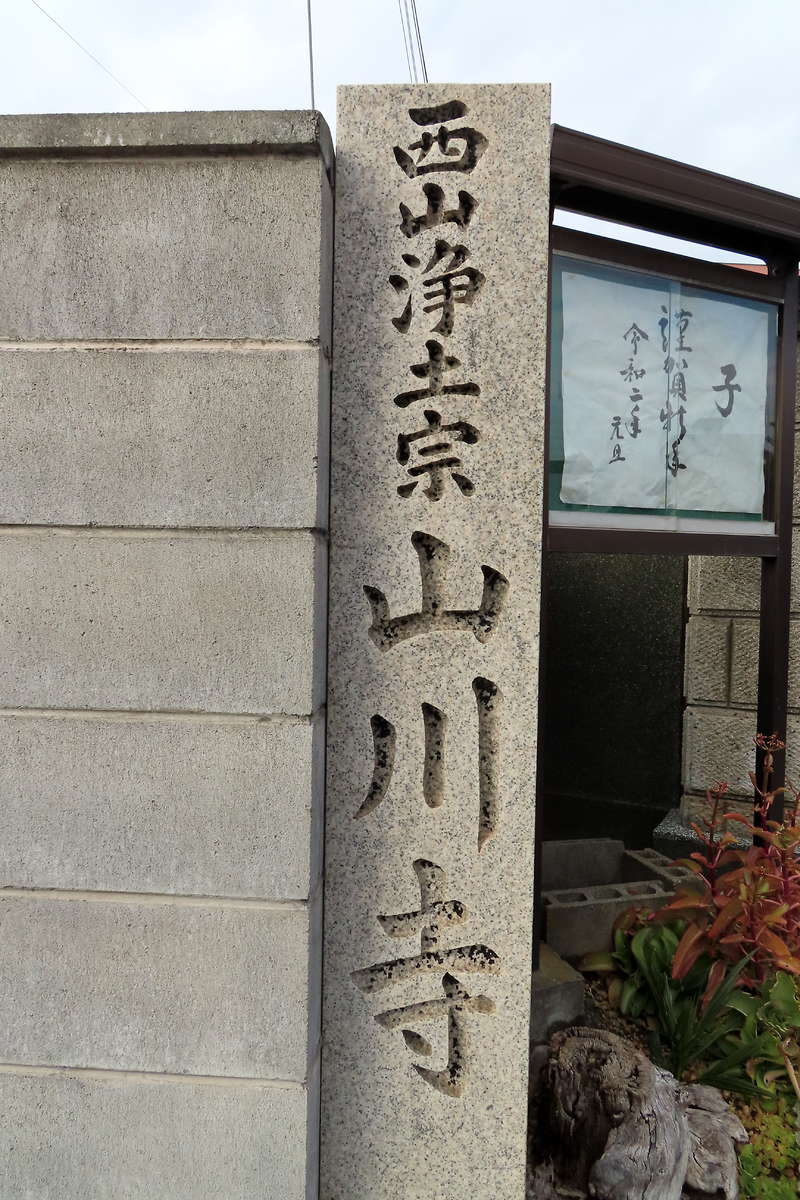 西山浄土宗山川寺
子
謹賀新年
令和二年
元旦